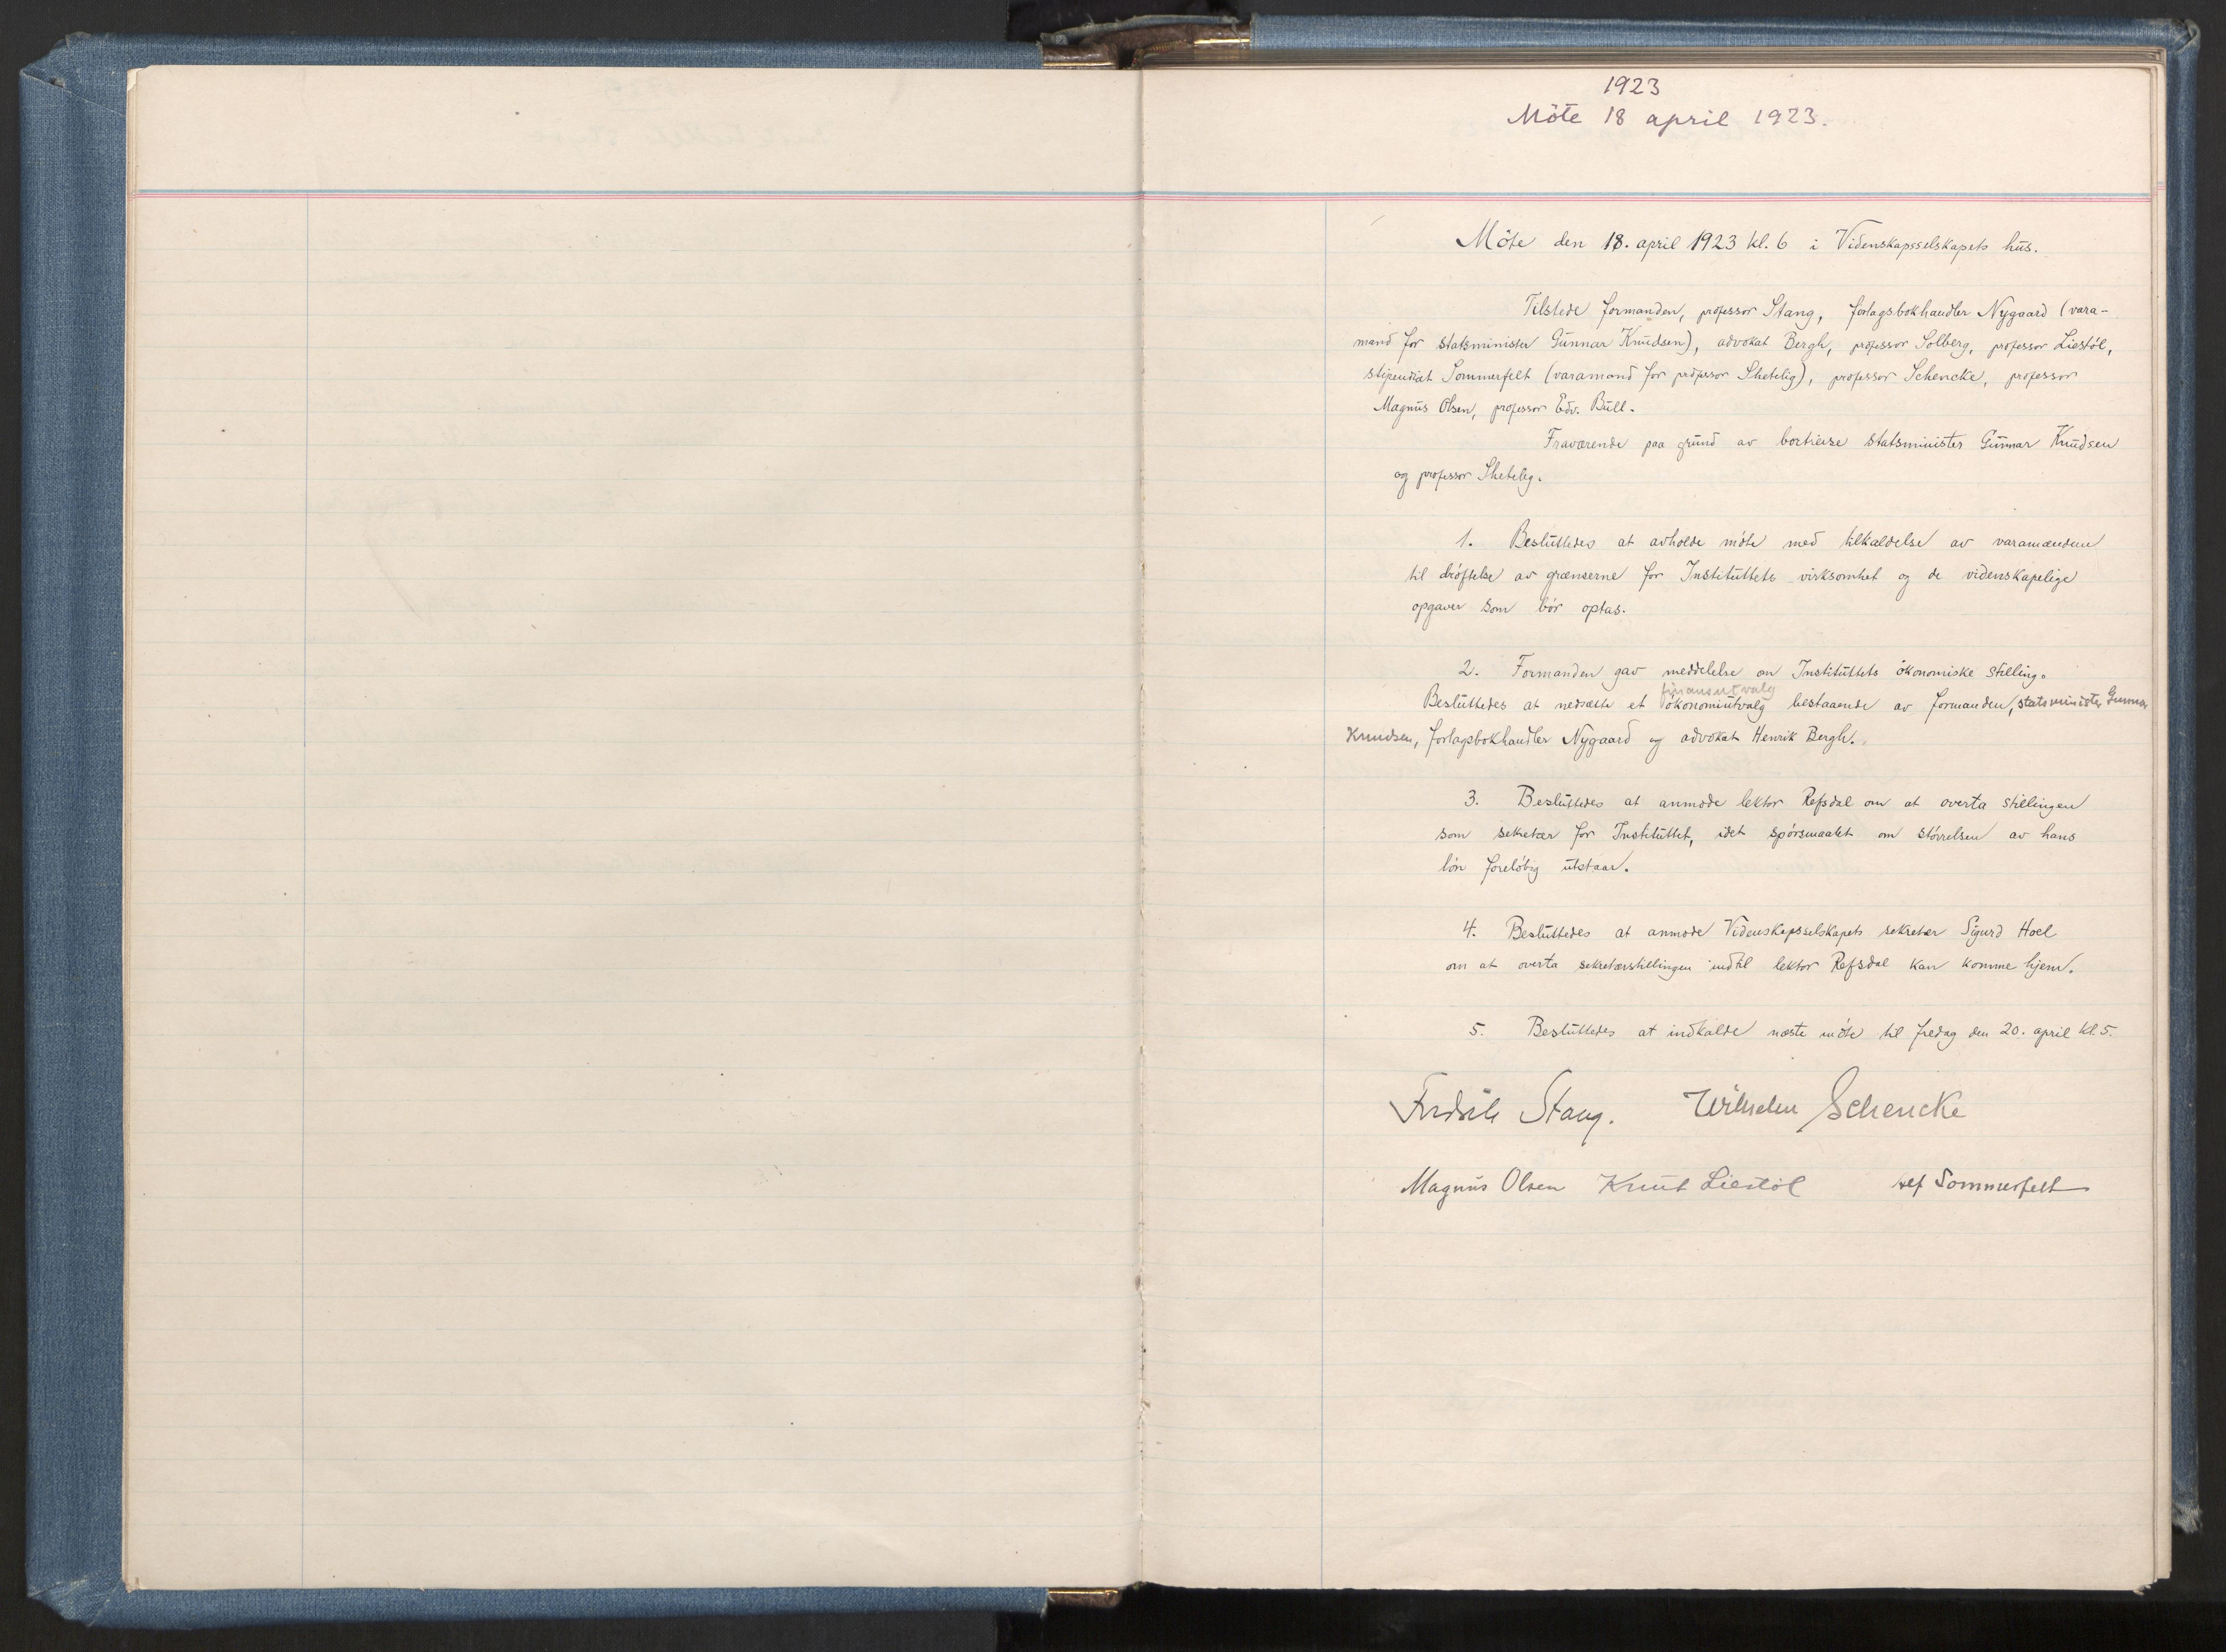 1923
Möte 18 april 1923.
Möte den 18. april 1923 kl. 6 i Videnskapsselskapets hus.
Tilstede formanden, professor Stang, forlagsbokhandler Nygaard (vara-
mand for statsminister Gunnar Knudsen), advokat Bergh, professor Solberg, professor Liestöl,
stipendiat Sommerfelt (varamand for professor Shetelig), professor Schencke, professor
Magnus Olsen, professor Edv. Bull.
Fraværende paa grund av bortreise statsminister Gunnar Knudsen
og professor Shetelig.
1. Besluttedes at avholde möte med tilkaldelse av varamændene
til dröftelse av grænserne for Instituttets virksomhet og de videnskapelige
opgaver som bör optas.
2. Formanden gav meddelelse om Instituttets ökonomiske stilling.
finansutvalg
Besluttedes at nedsætte et ökonomiutvalg bestaaende av formanden, statsminister Gunnar
Knudsen, forlagsbokhandler Nygaard og advokat Henrik Bergh.
3. Besluttedes at anmode lektor Refsdal om at overta stillingen
som sekretær for Instituttet, idet spörsmaalet om störrelsen av hans
lön forelöbig utstaar.
4. Besluttedes at anmode Videnskapsselskapets sekretær Sigurd Hoel
om at overta sekretærstillingen indtil lektor Refsdal kan komme hjem.
5. Besluttedes at indkalde næste möte til fredag den 20. april kl. 5.
Fredrik Stang. Wilhelm Schencke
Magnus Olsen Knut Liestöl Alf Sommerfelt